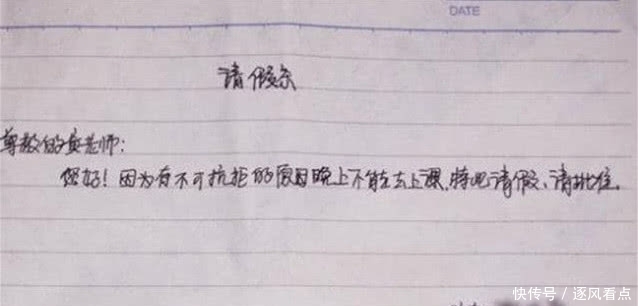 DATE
请假条
尊敬的吴老师:
您好!因为有不可抗拒的原因晚上不能去上课,特此请假、请批准。
快传号/逐风看点